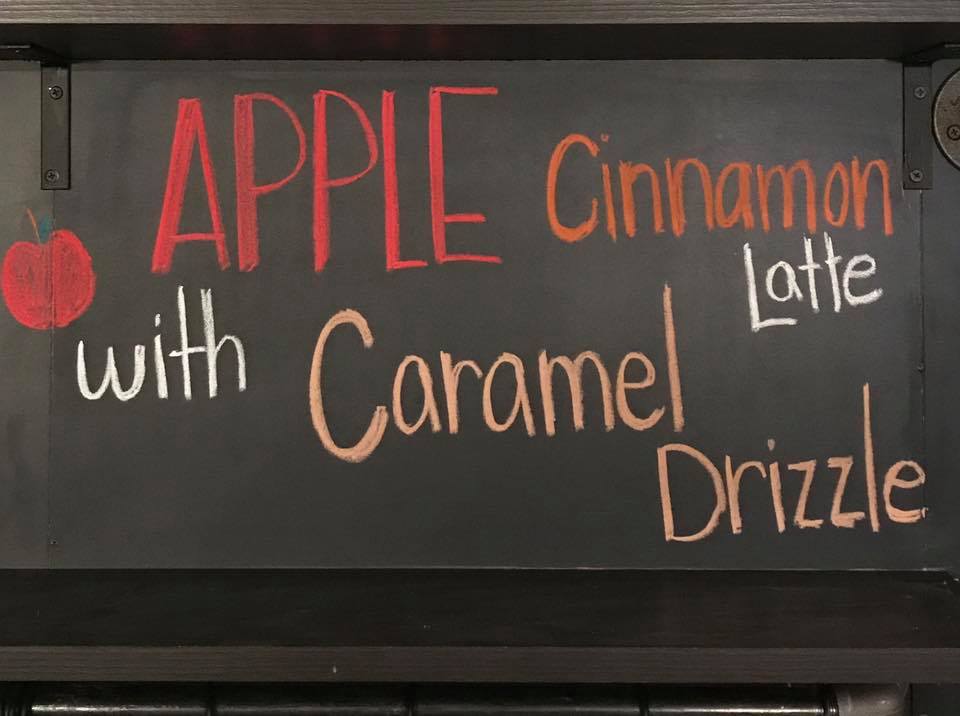 APPLE Cinnamon
Latte
with Caramel
Drizzle